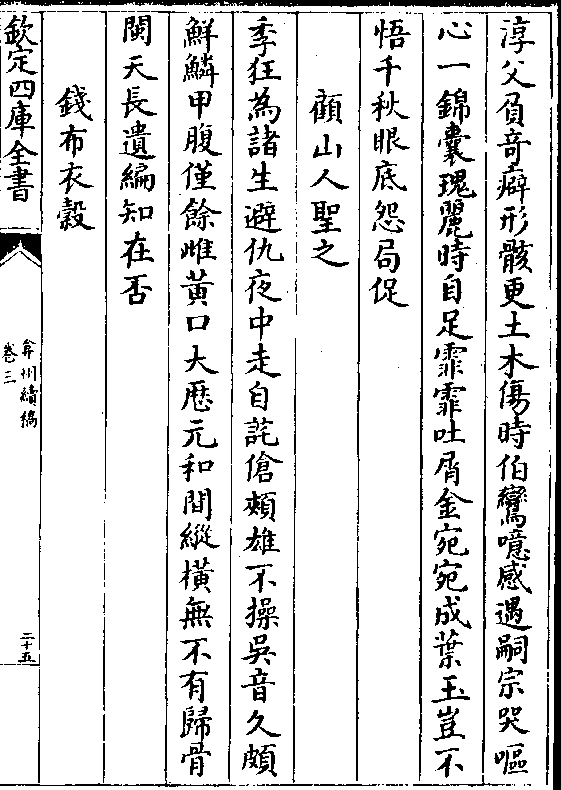 淳父負竒癖形骸更土木傷時伯鸞噫感遇嗣宗哭嘔
心一錦囊瑰麗時自足霏霏吐屑金宛宛成葉玉豈不
悟千秋眼底怨局促
顧山人聖之
季狂為諸生避仇夜中走自詫傖頰雄不操吳音久頗
鮮鱗甲腹僅餘雌黃口大厯元和間縱橫無不有歸骨
閩天長遺編知在否
錢布衣榖
欽定四庫全書
弇州續稿
卷三
二十五